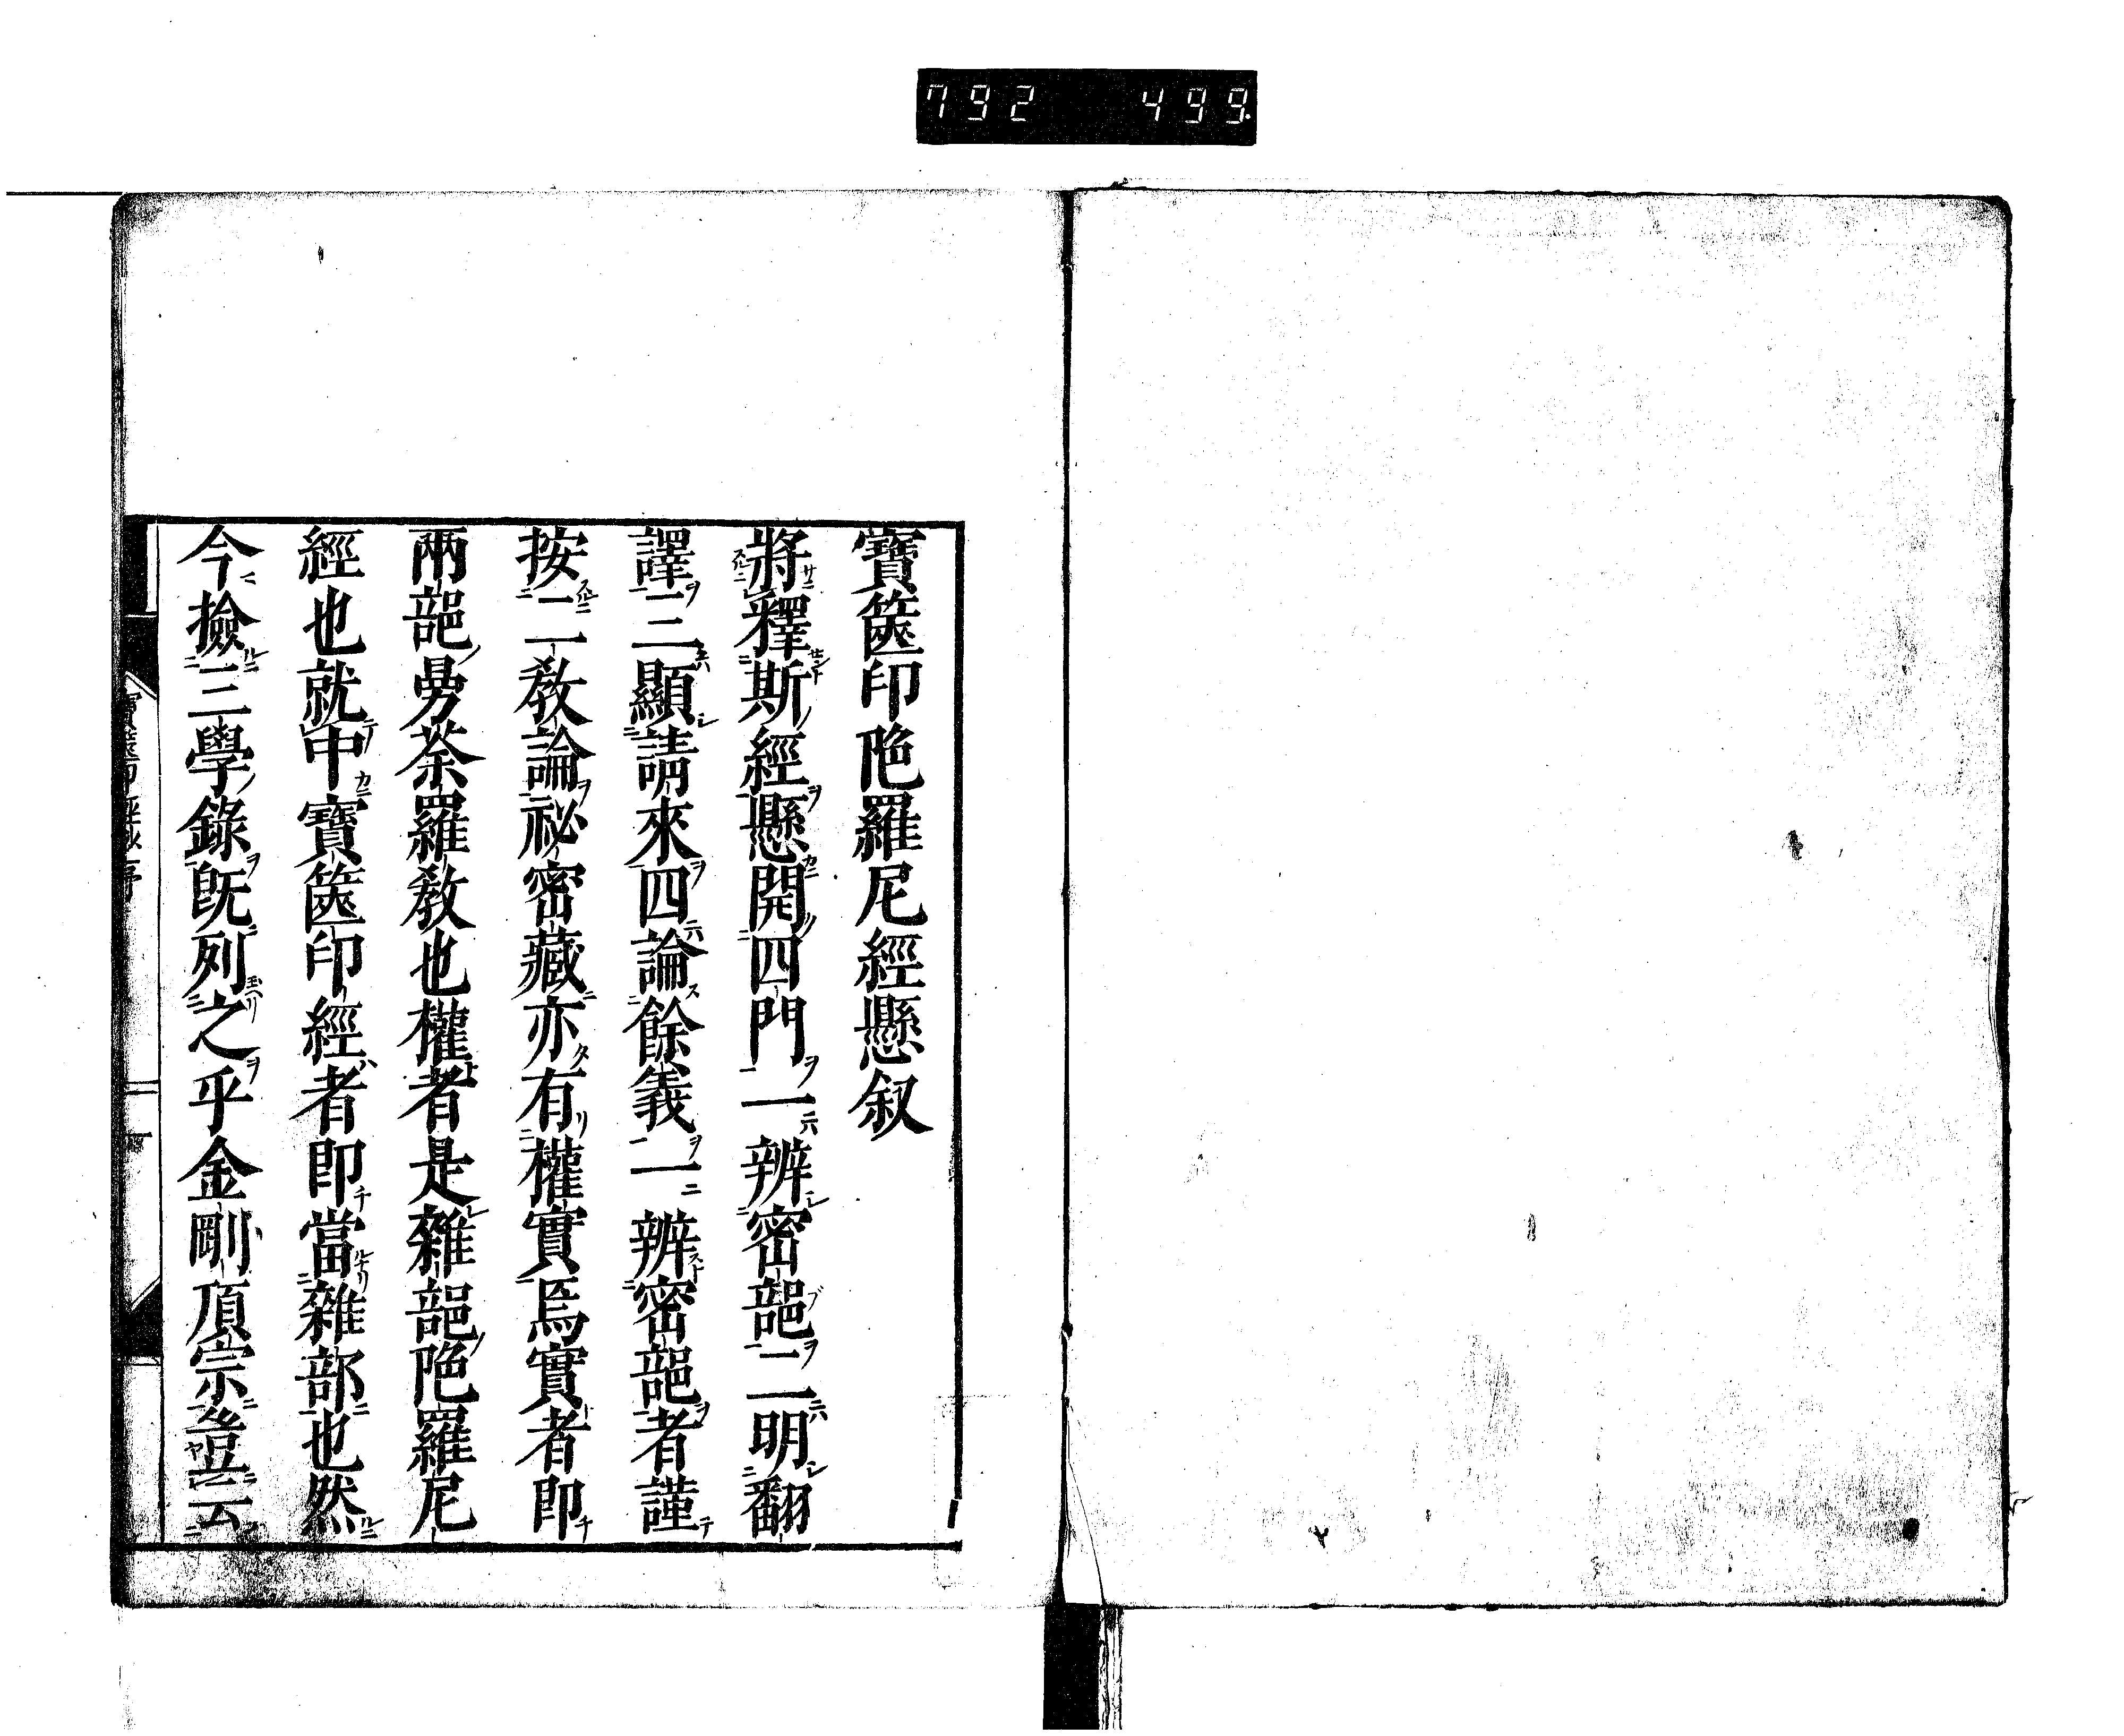 792 499
寶篋印陁羅尼經懸叙
將釋斯經懸開四門一辨密部二明翻
譯三顯請來四論餘義一辨密部者謹
按二教論祕密藏亦有權實焉實者即
兩部曼荼羅教也權者是雜部陁羅尼
經也就中寶篋印經者即當雜部也然
今撿三學錄既列之乎金剛頂宗豈云
寶篋印經鈔序
一